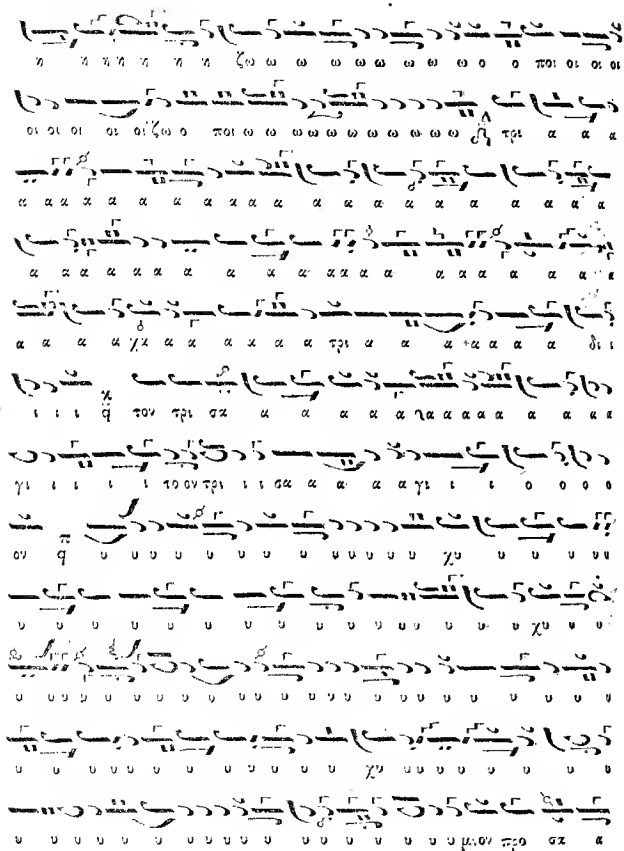 η η η η η η ζω ω ω ω ω ω ω ο ο ποι οι οι οι
οι οι οι οι οι ζω ο ποι ω ω ω ω ω ω ω ω ω τρι α α α
α α α α α α α α α α α α α α α α α α
α α α α α α α α α α α α α α α α α α
α α α α χα α α α α α τρι α α α α α α δι ι
ι ι ι τον τρι σα α α α α α γα α α α α α α
γι ι ι ι ι το ον τρι ι ι σα α α α α γι ι ι ο ο ο ο
ον υ υ υ υ υ υ υ υ υ υ υ υ χυ υ υ υ υ υ
υ υ υ υ υ υ υ υ υ υ υ υ υ υ χυ υ υ
υ υ υ υ υ υ υ υ υ υ υ υ υ υ υ υ υ υ υ υ υ
υ υ υ υ υ υ υ υ υ υ χυ υ υ υ υ υ υ υ υ
υ υ υ υ υ υ υ υ υ υ υ υ υ υ υ υ υ υ μνον προ σα α